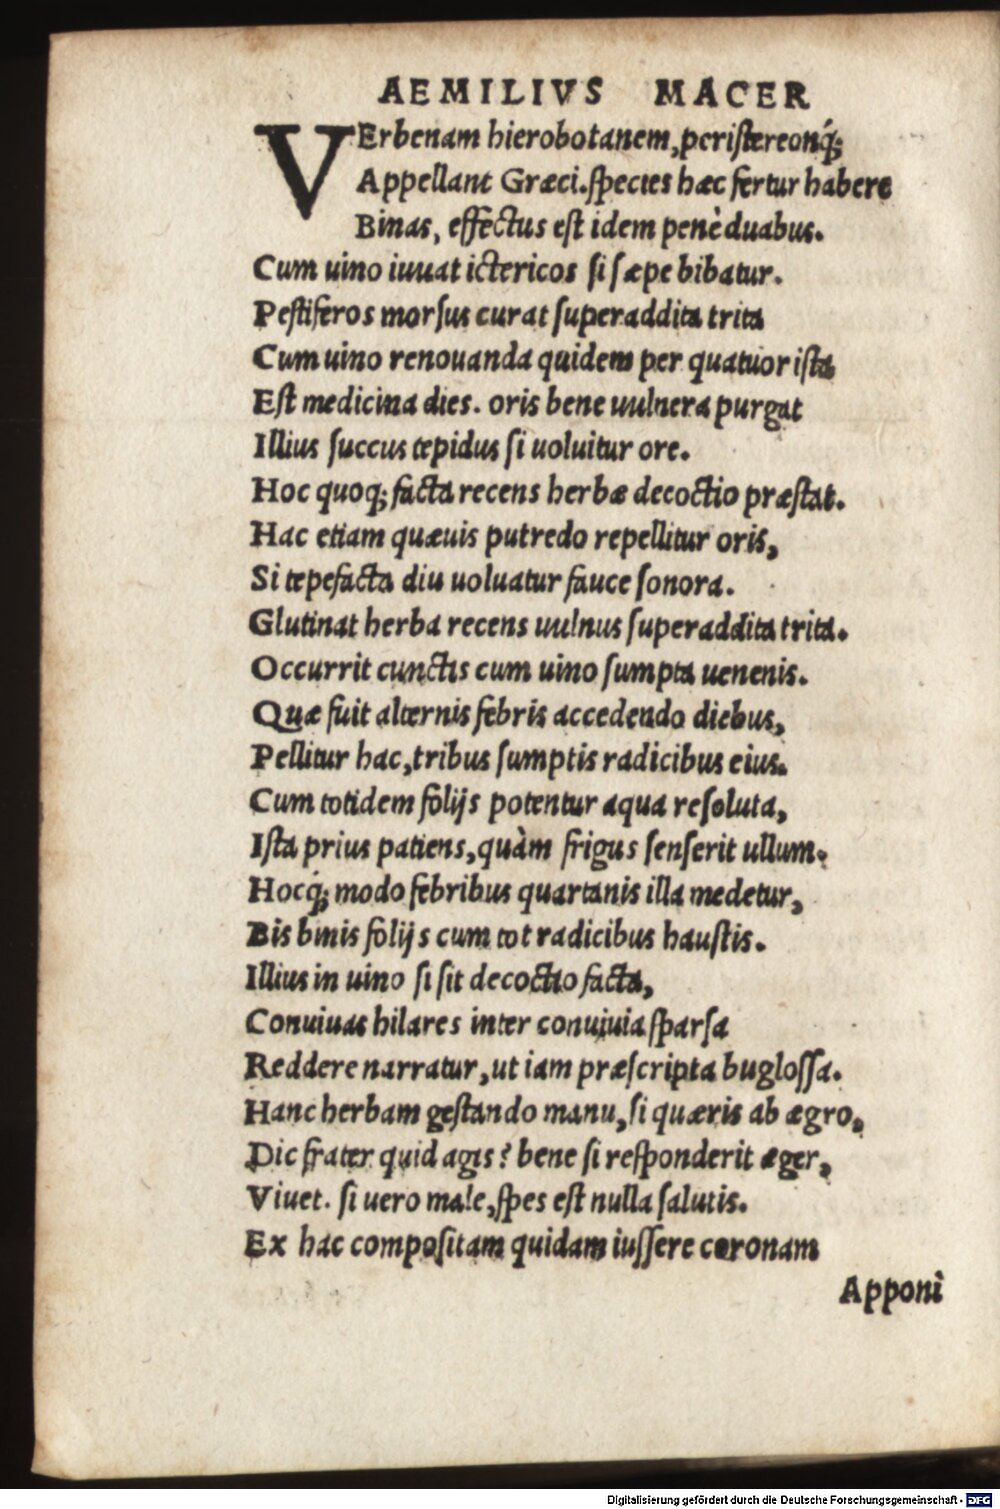 AEMILIVS MACER
VErbenam hierobotanem, peristereonq́;
Appellant Græci. species hæc fertur habere
Binas, effectus est idem penè duabus.
Cum uino iuuat ictericos si sæpe bibatur.
Pestiferos morsus curat superaddita trita
Cum uino renouanda quidem per quatuor ista
Est medicina dies. oris bene uulnera purgat
Illius succus tepidus si uoluitur ore.
Hoc quoq; facta recens herbæ decoctio præstat.
Hac etiam quæuis putredo repellitur oris,
Si tepefacta diu uoluatur fauce sonora.
Glutinat herba recens uulnus superaddita trita.
Occurrit cunctis cum uino sumpta uenenis.
Quæ fuit alternis febris accedendo diebus,
Pellitur hac, tribus sumptis radicibus eius.
Cum totidem folijs potentur aqua resoluta,
Ista prius patiens, quàm frigus senserit ullum.
Hocq́; modo febribus quartanis illa medetur,
Bis binis folijs cum tot radicibus haustis.
Illius in uino si sit decoctio facta,
Conuiuas hilares inter conuiuia sparsa
Reddere narratur, ut iam præscripta buglossa.
Hanc herbam gestando manu, si quæris ab ægro,
Dic frater quid agis? bene si responderit æger,
Viuet. si uero male, spes est nulla salutis.
Ex hac compositam quidam iussere coronam
Apponi
Digitalisierung gefördert durch die Deutsche Forschungsgemeinschaft - DFG